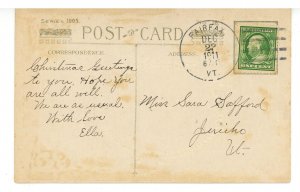 Series 1905.
POST CARD
CORRESPONDENCE
ADDRESS
Christmas Greetings
to you, Hope you
are all well.
We are as usual.
With love
Ella.
FAIRFAX
DEC
22
1911
VT.
Miss Sara Safford
Jericho
Vt.